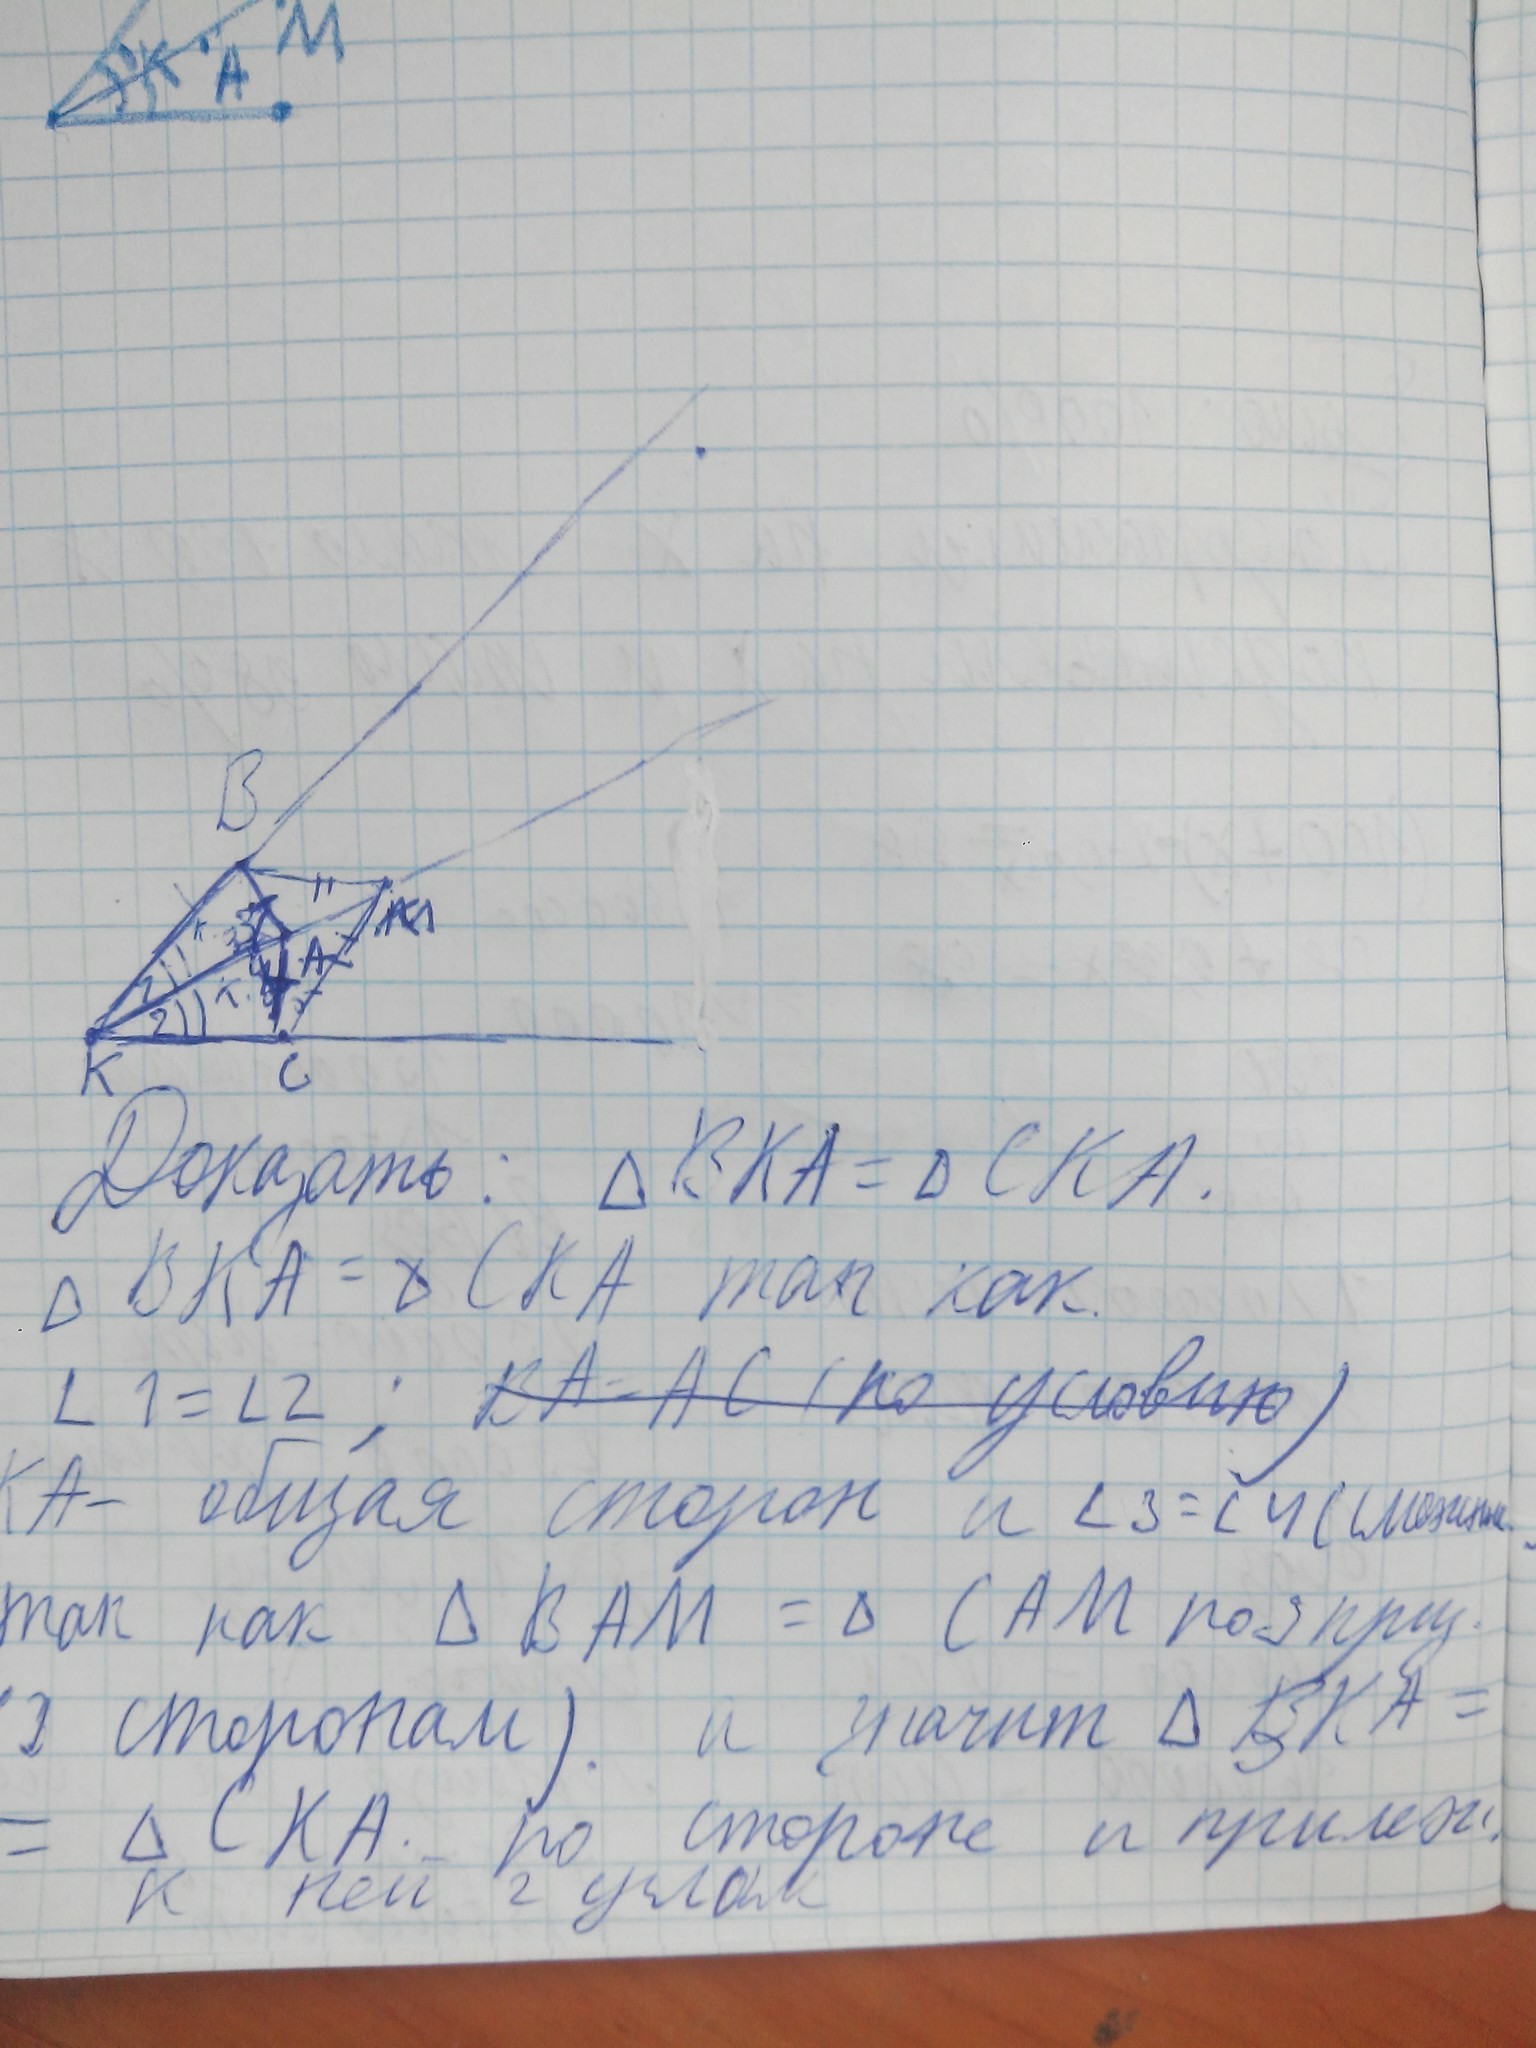 M
K A
B
M
3
A
1
2
4
K C
Доказать: △ BKA = △ CKA.
△ BKA = △ CKA так как.
∠ 1 = ∠2 ; KA = AC (по условию)
KA - общая сторон и ∠3 = ∠4 (смежные.
так как △ BAM = △ CAM по 3 приз.
(3 сторонам). и значит △ BKA =
= △ CKA. по стороне и прилеж.
к ней 2 углам